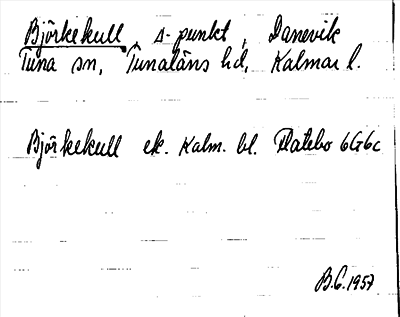 Björkekull, Δ-punkt, Danevik
Tuna sn, Tunaläns hd, Kalmar l.
Björkekull ek. Kalm. bl. Flatebo 6G6c
B.G. 1957